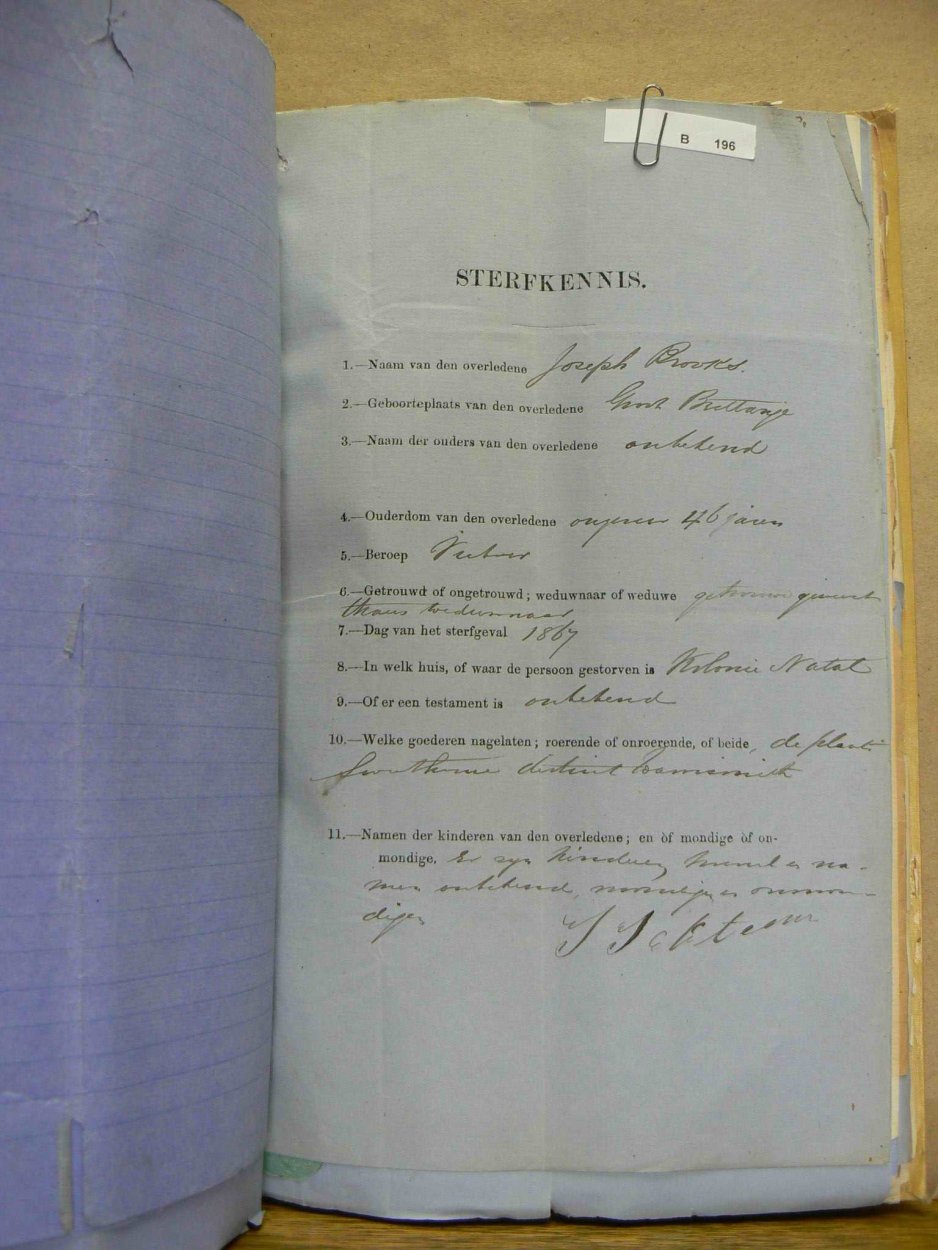 B 196
STERFKENNIS.
1.—Naam van den overledene Joseph Brooks.
2.—Geboorteplaats van den overledene Groot Brittanje
3.—Naam der ouders van den overledene onbekend
4.—Ouderdom van den overledene ongeveer 46 jaren
5.—Beroep
6.—Getrouwd of ongetrouwd; weduwnaar of weduwe getrouwd geweest
thans weduwnaar
7.—Dag van het sterfgeval 1867
8.—In welk huis, of waar de persoon gestorven is Kolonie Natal
9.—Of er een testament is onbekend
10.—Welke goederen nagelaten; roerende of onroerende, of beide, de plaats
district
11.—Namen der kinderen van den overledene; en òf mondige òf on-
mondige. Er zyn kinderen na-
men onbekend, onmon-
digen